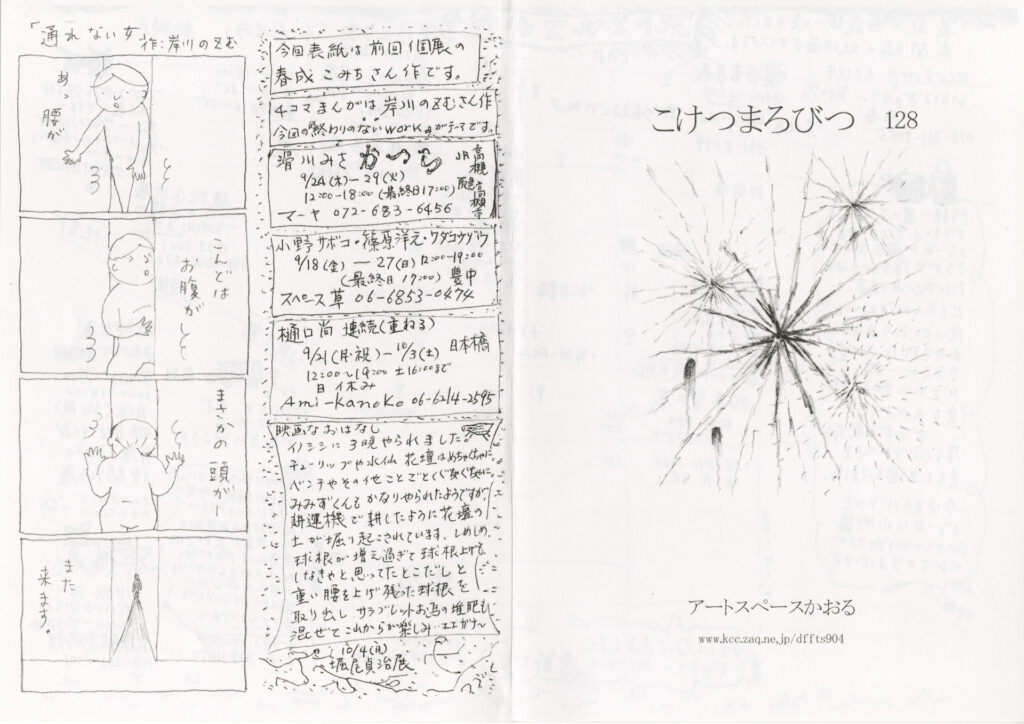 「通れない女」
作:岸川のぞむ
あ、
腰が
ろ
と
と
こんどは
お腹が
と
と
ろ
まさかの
頭がー
と
と
ろ
また
来ます。
今回表紙は前回個展の
春成こみちさん作です。
4コマまんがは岸川のぞむさん作
今回の終わりのないworkがテーマです。
滑川みさ かつら
JR高槻
阪急高槻市
9/24(木)-29(火)
12:00-18:00(最終日17:00)
マーヤ 072-683-6456
小野サボコ・篠原洋元・ワダコウゾウ
9/18(金)-27(日)12:00-19:00
(最終日17:00) 豊中
スペース草 06-6853-0474
樋口尚 連続(重ねる)
9/21(月・祝)-10/3(土) 日本橋
12:00〜19:00 土16:00まで
日休み
Ami-Kanoko 06-6214-2595
映画なおはなし
イノシシに3晩やられました。
チューリップや水仙 花壇はめちゃくちゃに
ベンチやその他ことごとくぐちゃぐちゃに
みみずくんもかなりやられたようですが、
耕運機で耕したように花壇の
土が堀り起こされています。しめしめ、
球根が増え過ぎて球根上げを
しなきゃと思ってたとこだしと
重い腰を上げ残った球根を
取り出し サラブレットお馬の堆肥も
混ぜてこれからが楽しみ…エエガナ〜
10/4(日)
〜堀尾貞治展
こけつまろびつ 128
アートスペースかおる
www.kcc.zaq.ne.jp/dffts904